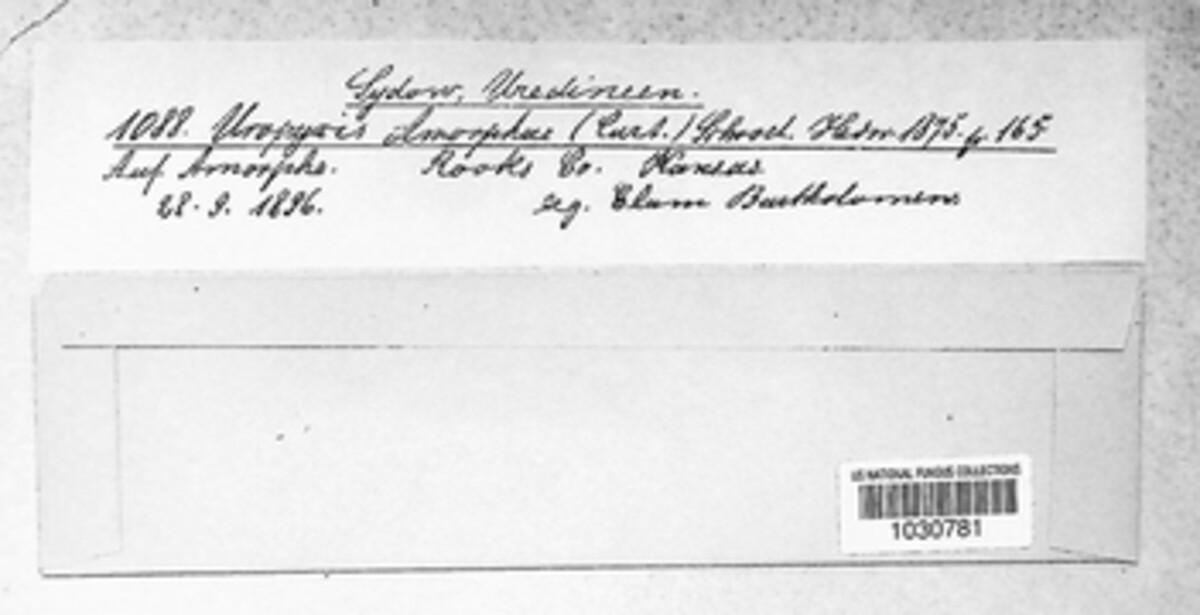 Sydow, Uredineen.
1088. Uropyxis Amorphae (Curt.) Schroet. Hedw. 1875. p. 165
Auf Amorpha. Rooks Co. Kansas
28. 9. 1896. leg. Elam Bartholomew
US NATIONAL FUNGUS COLLECTIONS
1030781